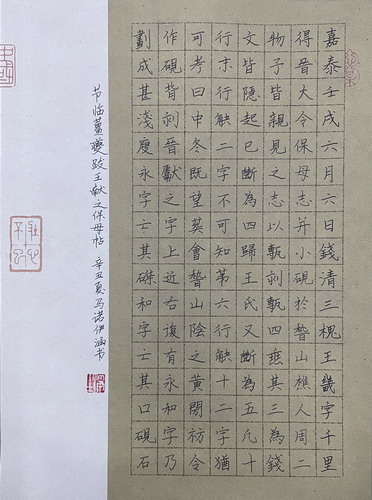 嘉泰壬戌六月六日錢清三槐王畿字千里
得晉大令保母志并小硯於稽山樵人周二
物予皆親見之志以甎刻甎四垂其三為錢
文皆隱起已斷為四歸王氏又斷為五凡十
行末行缺二字不可知第六行缺十二字猶
可考曰中冬既望葬會稽山陰之黃閍祊令
作硯背刻晉獻之字上近右復有永和字乃
劃成甚淺瘦永字亡其磔和字亡其口硯石
节临薑夔跋王献之保母帖 辛丑夏马诺伊涵书